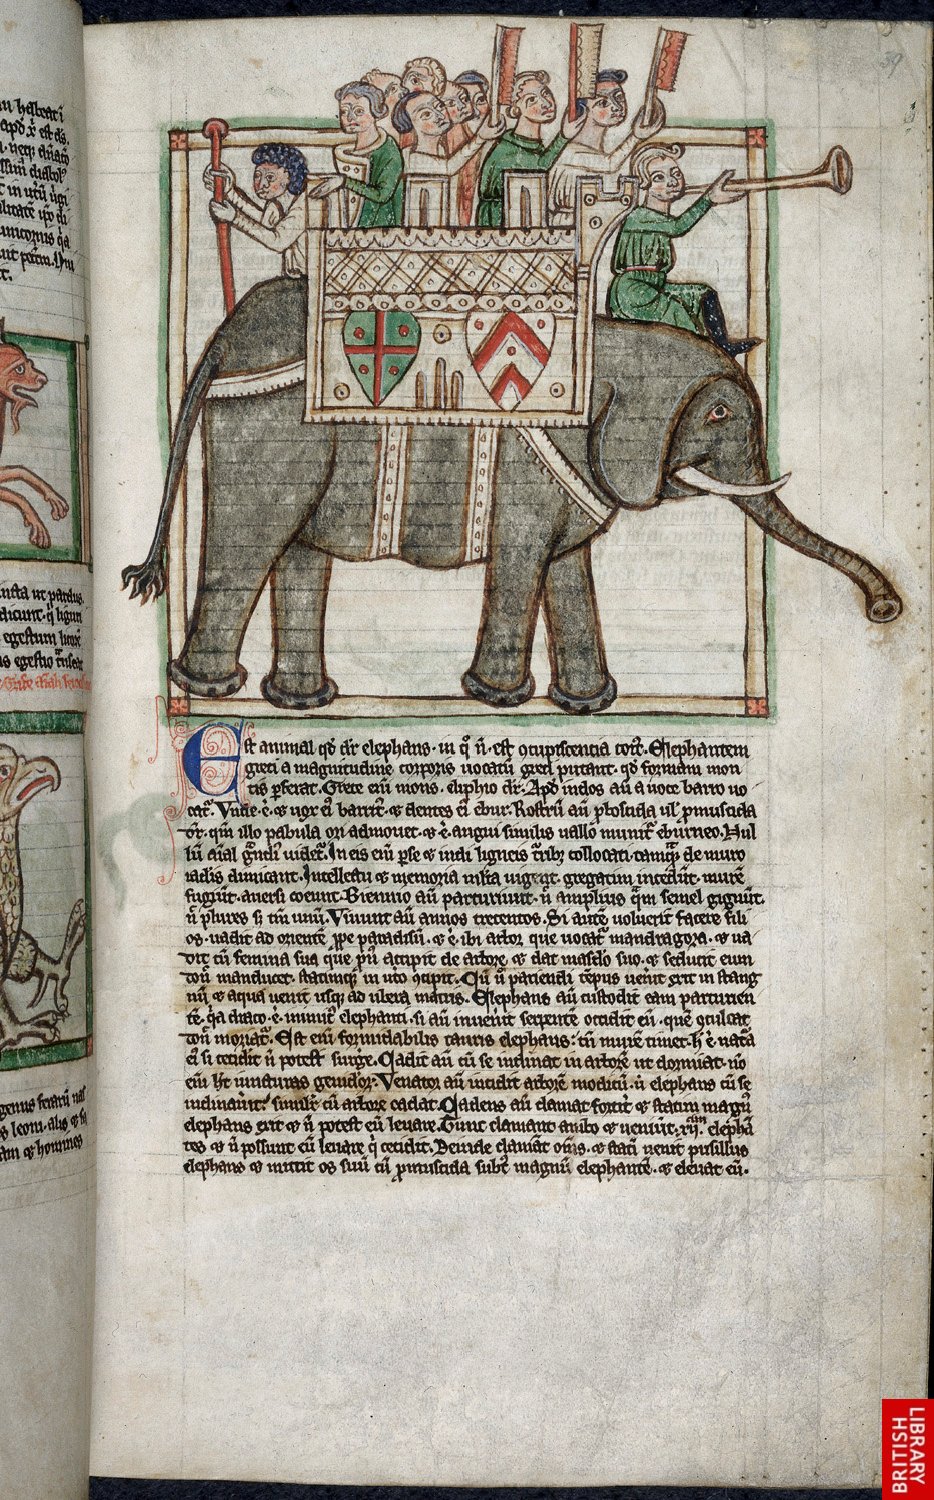 icta ut pardus.
dicunt. q̇ ligurı
egestum
genus ferarū
leoni. alis
⁊ homines
39
Est animal qd̄ dr̄ elephans. in q° n̄ est ꝯcupiscencia coit9. Elephantem
greci a magnitudine corporis uocatū greci putant. qd̄ formam mon
tis p̄ferat. Grece eni̅ mons. eliphio dr̄. Apd̄ indos aū a uoce barro uo
cat᷑. Vnde. ⁊ uox ei9 barrit9. ⁊ dentes ei9 ebur. Rostrū aū ꝓboscida ul̄ ꝓmuscida
dr̄. qm̄ illo pabula ori admouet. ⁊ ē angui similis uallo munit᷑ eburneo. Nul
lū aīal g̃ndi9 uidet᷑. In eis eni̅ perse ⁊ indi ligneis turrib; collocati tamq̃ de muro
iaclis dimicant. Intellectu ⁊ memoria mlta uigēt. gregatim incedūt. murē
fugiūt. auersi coeunt. Biennio aū parturiunt. n̄ amplius q̃m semel gignūt.
n̄ plures s; tm̄ unū. Viuunt aū annos trecentos. Si autē uoluerit facere fili
os. uadit ad orientē ꝓpe paradisū. ⁊ ē. ibi arbor que uocat᷑ mandragora. ⁊ ua
dit cū femina sua que pri9 accipit de arbore. ⁊ dat masclo suo. ⁊ seducit eum
don̄ manducet. statimq; in ut̄o ꝯcipit. Cū ů pariendi tēpus uenit exit in stang
nū. ⁊ aqua uenit usq; ad ubera matris. Elephans aū custodit eam parturien
tē. q̃a draco. ē. inimic9 elephanti. si aū inuenit serpentē occidit eū. quē ꝯculcat
don̄ moriat᷑. Est eni̅ formidabilis tauris elephans: tn̄ murē timet. h̄ ē nat̃a
ei9 si cecidit n̄ potest surge. Cadit aū cū se inclinat in arborē ut dormiat. nō
eni̅ ht̄ iuncturas genicłor. Venator aū incidit arborē modicū. ū elephans cū se
inclinauit. simul̄ cū arbore cadat. Cadens aū clamat fortit̄ ⁊ statim magn9
elephans exit ⁊ n̄ potest eū leuare. Tunc clamant ambo ⁊ ueniūt. xii. elephā
tes ⁊ n̄ possunt eū leuare q̇ cecidit. Deinde clamāt om̄s. ⁊ stati̅ uenit pusillus
elephans ⁊ mittit os suū cū ꝓmuscida subt9 magnū elephantē. ⁊ eleuat eū.
BRITISH
LIBRARY